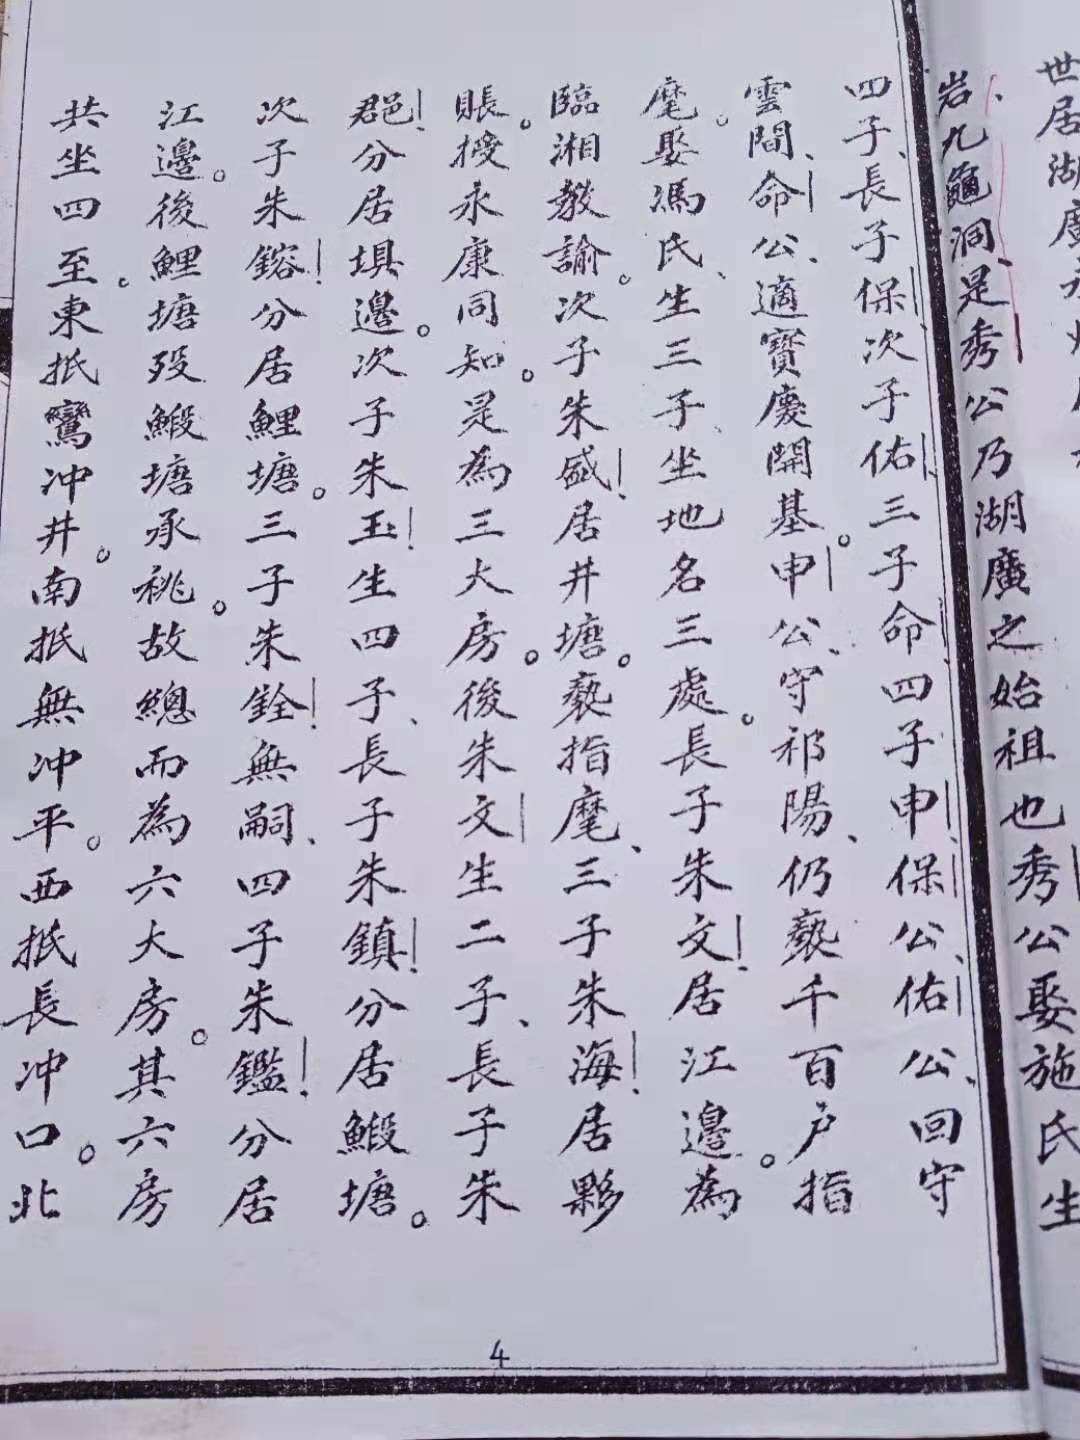 世居湖廣永州
岩九龜洞、是秀公乃湖廣之始祖也秀公娶施氏生
四子、長子保、次子佑、三子命、四子申、保公、佑公、回守
雲閒、命公、適寶慶開基。申公、守祁陽、仍襲千百户指
麾。娶馮氏、生三子、坐地名三處。長子朱文居江邊。為
臨湘教諭。次子朱盛居井塘。襲指麾、三子朱海居夥
賬。授永康同知。是為三大房。後朱文生二子、長子朱
郡分居埧邊。次子朱玉生四子、長子朱鎮分居鰕塘。
次子朱鎔分居鯉塘。三子朱銓無嗣、四子朱鑑分居
江邊。後鯉塘歿鰕塘承祧。故總而為六大房。其六房
共坐四至。東抵鸞冲井。南抵無冲平。西抵長冲口。北
4